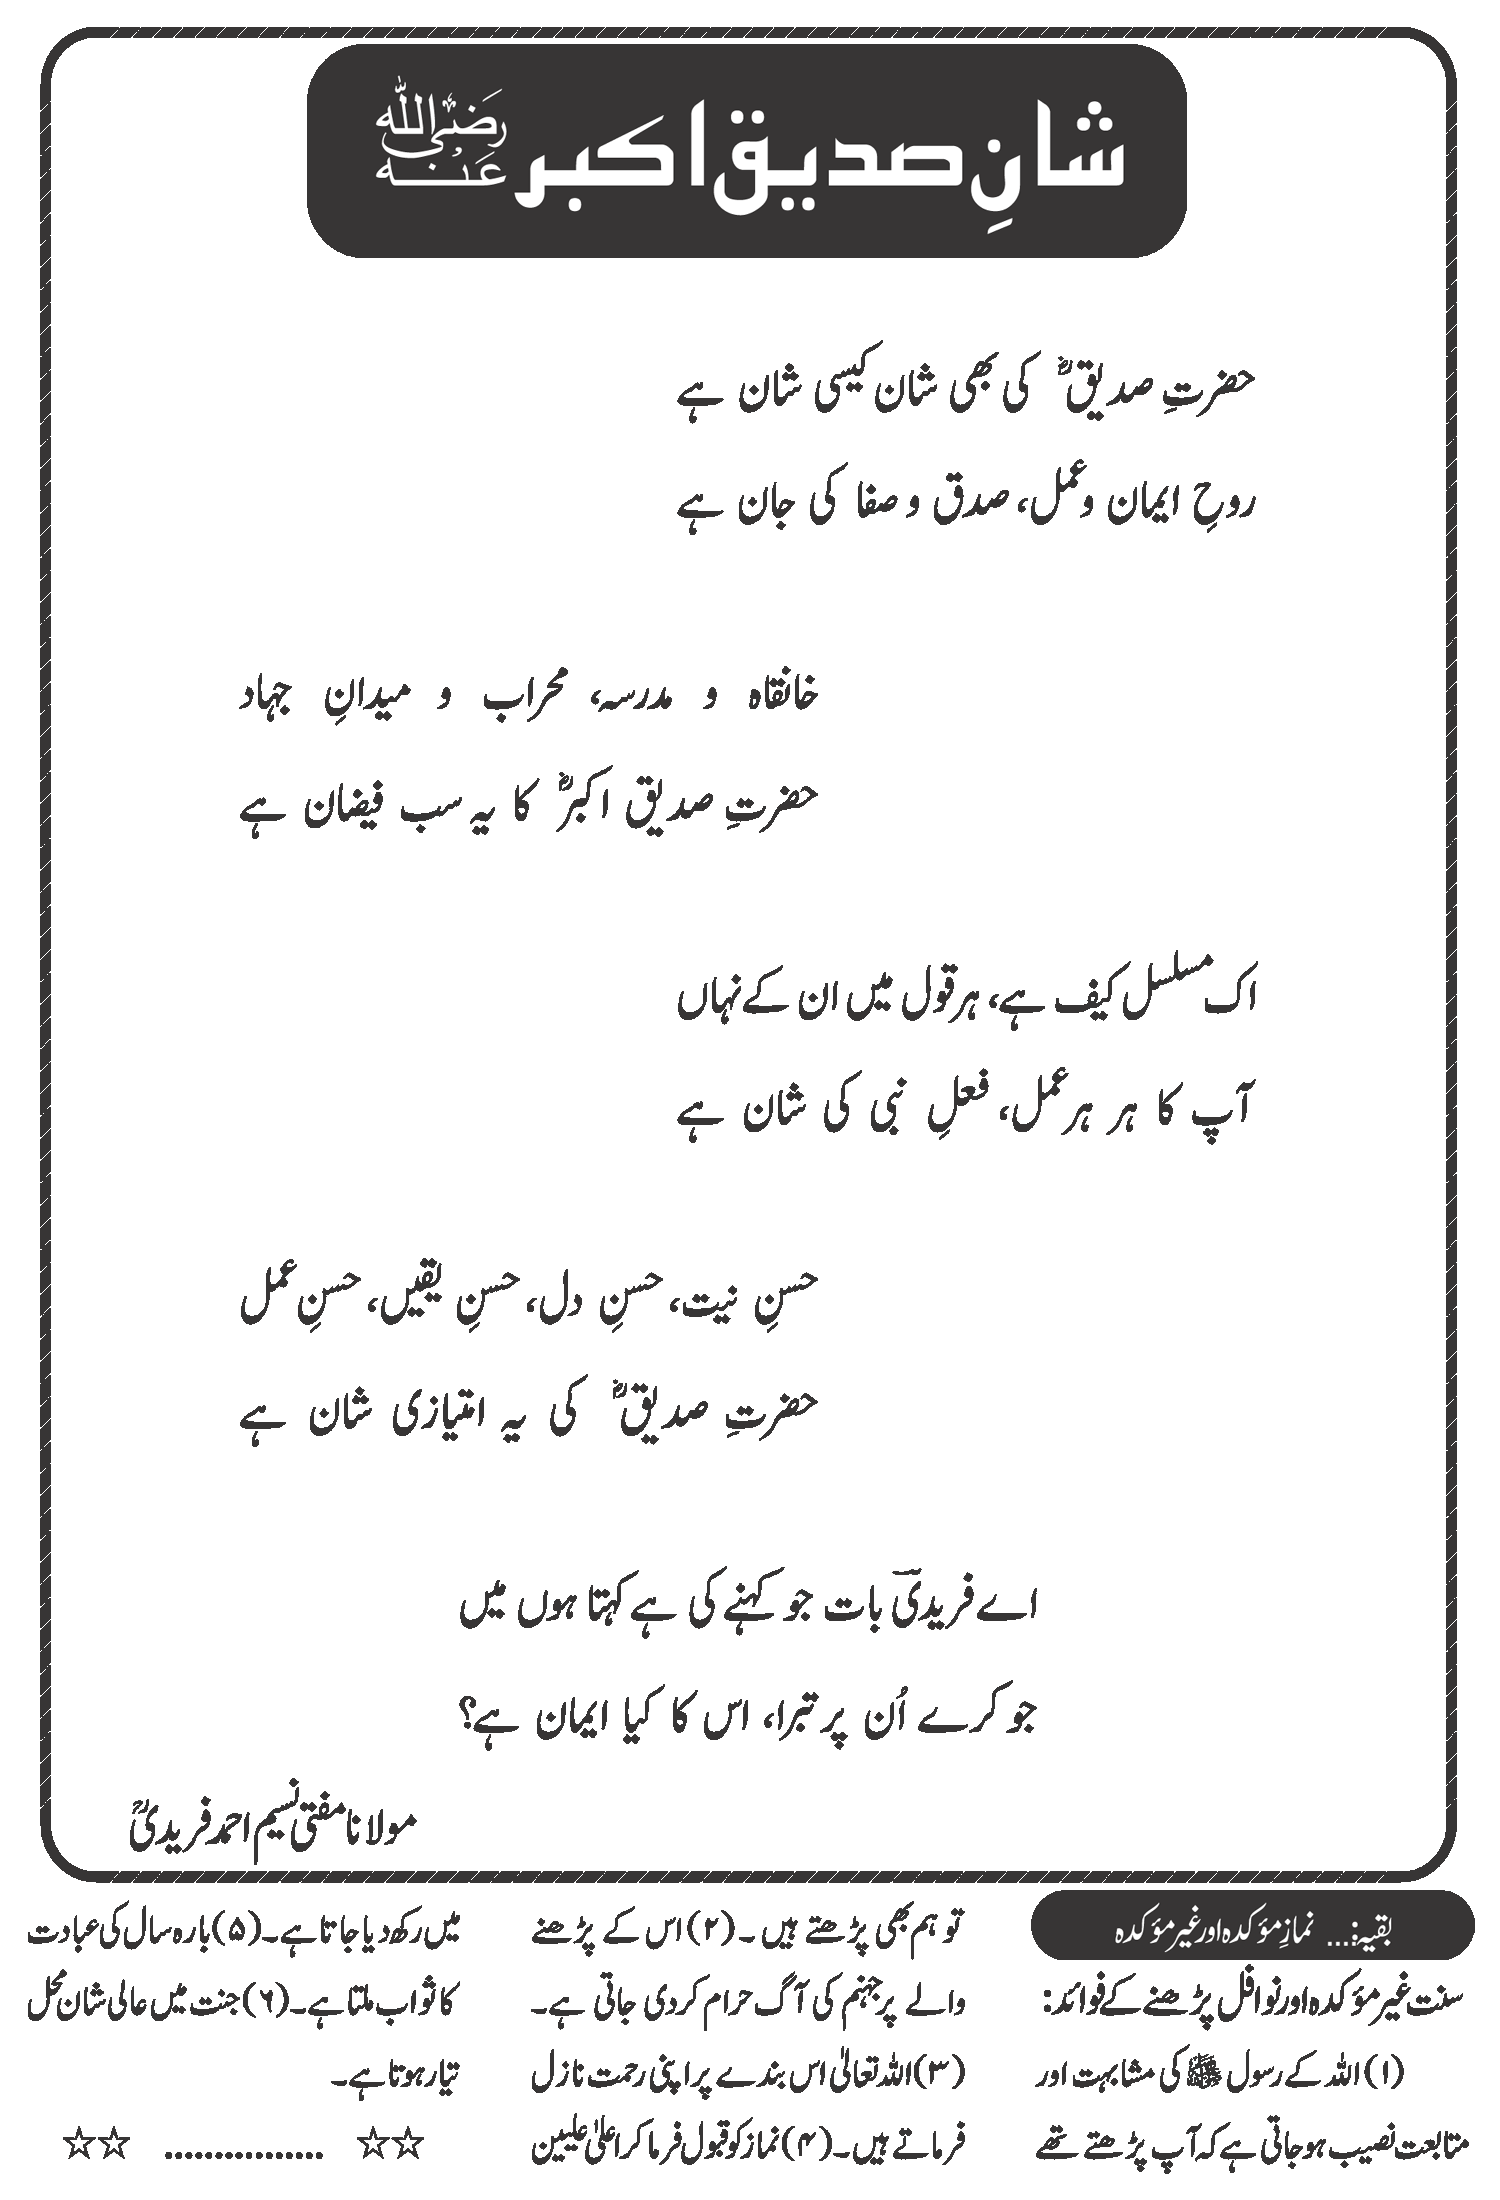 شانِ صدیق اکبر رَضِیَ اللّٰہُ عَنْہ
حضرتِ صدیقؓ کی بھی شان کیسی شان ہے
روحِ ایمان و عمل، صدق و صفا کی جان ہے
خانقاہ و مدرسہ، محراب و میدانِ جہاد
حضرتِ صدیق اکبرؓ کا یہ سب فیضان ہے
اک مسلسل کیف ہے، ہر قول میں ان کے نہاں
آپ کا ہر ہر عمل، فعلِ نبی کی شان ہے
حسنِ نیت، حسنِ دل، حسنِ یقیں، حسنِ عمل
حضرتِ صدیقؓ کی یہ امتیازی شان ہے
اے فریدیؔ بات جو کہنے کی ہے کہتا ہوں میں
جو کرے اُن پر تبرا، اس کا کیا ایمان ہے؟
مولانا مفتی نسیم احمد فریدیؒ
بقیہ:... نمازِ مؤکدہ اور غیر مؤکدہ
سنت غیر مؤکدہ اور نوافل پڑھنے کے فوائد:
(۱) اللہ کے رسول ﷺ کی مشابہت اور
متابعت نصیب ہو جاتی ہے کہ آپ پڑھتے تھے
تو ہم بھی پڑھتے ہیں۔ (۲) اس کے پڑھنے
والے پر جہنم کی آگ حرام کردی جاتی ہے۔
(۳) اللہ تعالیٰ اس بندے پر اپنی رحمت نازل
فرماتے ہیں۔ (۴) نماز کو قبول فرما کر اعلیٰ علیین
میں رکھ دیا جاتا ہے۔ (۵) بارہ سال کی عبادت
کا ثواب ملتا ہے۔ (۶) جنت میں عالی شان محل
تیار ہوتا ہے۔
☆☆ ................ ☆☆